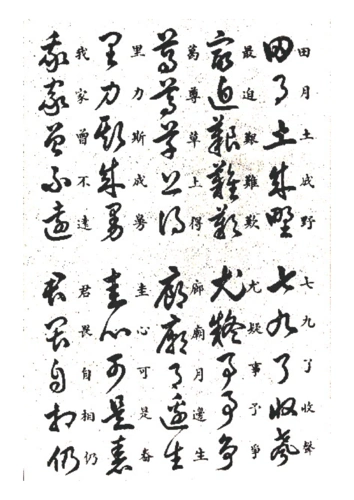 田月土成野 七九了收聲
最迫艱難歎 尤疑事予爭
萬尊草上得 廊廟月邊生
里力斯成 圭心可是春
我家曾不遠 君畏自相仍